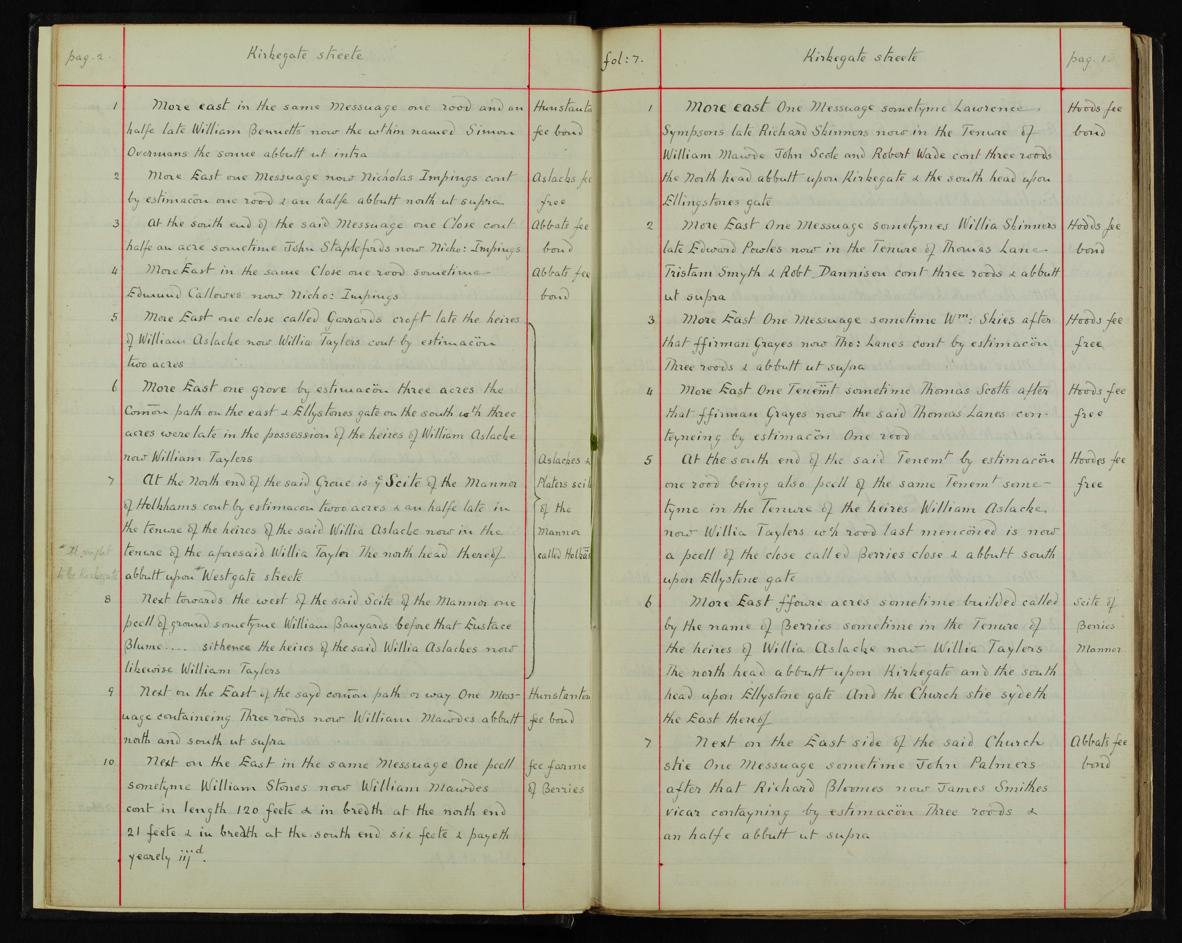 pag. 2.
Kirkegate streete
1 More east in the same Messuage one rood and an
halfe late William Bennetts now the wthin named Simon
Overmans the sonne abbutt ut intra
Hunstanto
fee bond
2 More East one Messuage now Nicholas Impings cont
by estimacōn one rood & an halfe abbutt north ut supra
Aslacks fee
free
3 At the south end of the said Messuage one Close cont
halfe an acre sometime John Staplefords now Nicho: Impings
Abbats fee
bond
4 More East in the same Close one rood sometime
Edmund Callowes now Nicho: Impings
Abbats fee
bond
5 More East one close called Garrards croft late the heires
of William Aslacke now Willia Taylers cont by estimacōn
two acres
6 More East one grove by estimacōn three acres the
Comōn path on the east & Ellystones gate on the south wch three
acres were late in the possession of the heires of William Aslacke
now William Taylors
7 At the North end of the said Grove is ye Scite of the Mannor
of Holkhams cont by estimacon twoo acres & an halfe late in
the tenure of the heires of the said Willia Aslacke now in the
tenure of the aforesaid Willia Taylor The north head thereof
abbutt upon * Westgate streete
Aslackes &
Platers scite
of the
Mannor
called
* It
to be Kirkegate
8 Next towards the west of the said Scite of the Mannor one
pcell of ground sometyme William Banyards before that Eustace
Blume..... sithence the heires of the said Willia Aslackes now
likewise William Taylers
9 Next on the East of the sayd comōn path or way One Mess-
uage containeing Three roods now William Mawdes abbutt
north and south ut supra
Hunstanton
fee bond
10 Next on the East in the same Messuage One pcell
sometyme William Stones now William Mawdes
cont in length 120 feete & in bredth at the north end
21 feete & in bredth at the south end six feete & payeth
yearely iijd.
fee farme
of Berries
fol: 7.
Kirkegate streete
pag. 1.
1 More east One Messuage sometyme Lawrence
Sympsons late Richard Skinners now in the Tenure of
William Mawde John Scole and Robert Wade cont three roods
the North head abbutt upon Kirkegate & the south head upon
Ellingstones gate
Hoods fee
bond
2 More East One Messuage sometymes Willia Skinners
late Edward Powles now in the Tenure of Thomas Lane
Tristam Smyth & Robt. Dannison cont three roods & abbutt
ut supra
Hodds fee
bond
3 More East One Messuage sometime Wm: Skies after
that ffirman Grayes now Tho: Lanes cont by estimacōn
Three roods & abbutt ut supra
Hoods fee
free
4 More East One Tenemt sometime Thomas Scotts after
that ffirman Grayes now the said Thomas Lanes con-
teyneing by estimacōn One rood
Hoods fee
free
5 At the south end of the said Tenemt by estimacōn
one rood being also pcell of the same Tenemt some-
tyme in the Tenure of the heires William Aslacke
now Willia Taylers wch rood last mencōned is now
a pcell of the close called Berries close & abbutt south
upon Ellystone gate
Hoodes fee
free
6 More East ffowre acres sometime builded called
by the name of Berries sometime in the Tenure of
the heires of Willia Aslacke now Willia Taylers
The north head abbutt upon Kirkegate and the south
head upon Ellystone gate And the Church stie sydeth
the East thereof
Scite of
Berries
Mannor
7 Next on the East side of the said Church
stie One Messuage sometime John Palmers
after that Richard Bloomes now James Smithes
vicar contayning by estimacōn Three roods &
an halfe abbutt ut supra
Abbats fee
bond